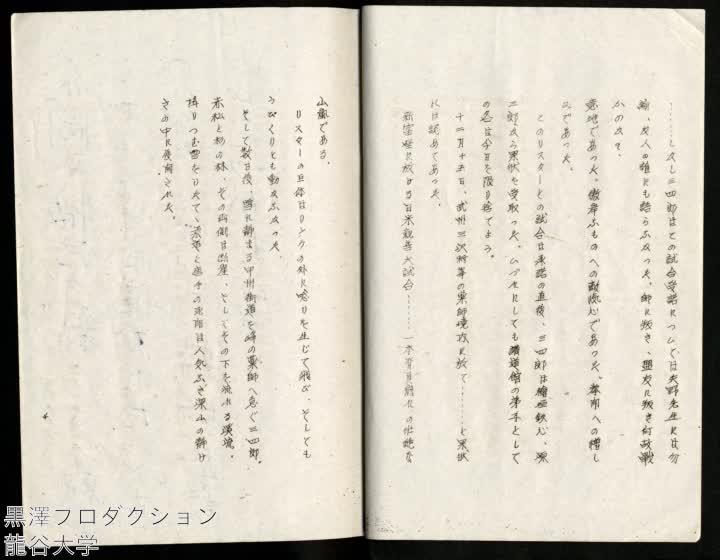 ……しかし三四郎はこの試合受諾については矢野先生には勿
論、友人の誰にも語らなかった。師に叛き、盟友に叛き何故戦
かのか。
意地であった。傲岸なものへの敵愾心であった。拳闘への憎し
みであった。
このリスターとの試合は承諾の直後、三四郎は檜垣鉄心、源
三郎から果状を受取った。いづれにしても講道館の弟子として
の名は今日を限り捨てよう。
十二月十五日、武州三沢村峯の薬師境内に於て……と果状
には認めてあった。
新富座に於ける日米親善大試合……
山嵐である。
リスターの巨体はリングの外に唸りを生じて飛ぶ、そしても
うぴくりとも動かなかった。
そして数日後、雪に静まる甲州街道を峰の薬師へ急ぐ三四郎。
赤松と杉の林、その両側は断崖、そしてその下を流れる渓流。
降りつむ雪をけたてゝ、柔道と唐手の死闘は人気なき深山の静け
さの中に展開された。
4
黒澤プロダクション
龍谷大学